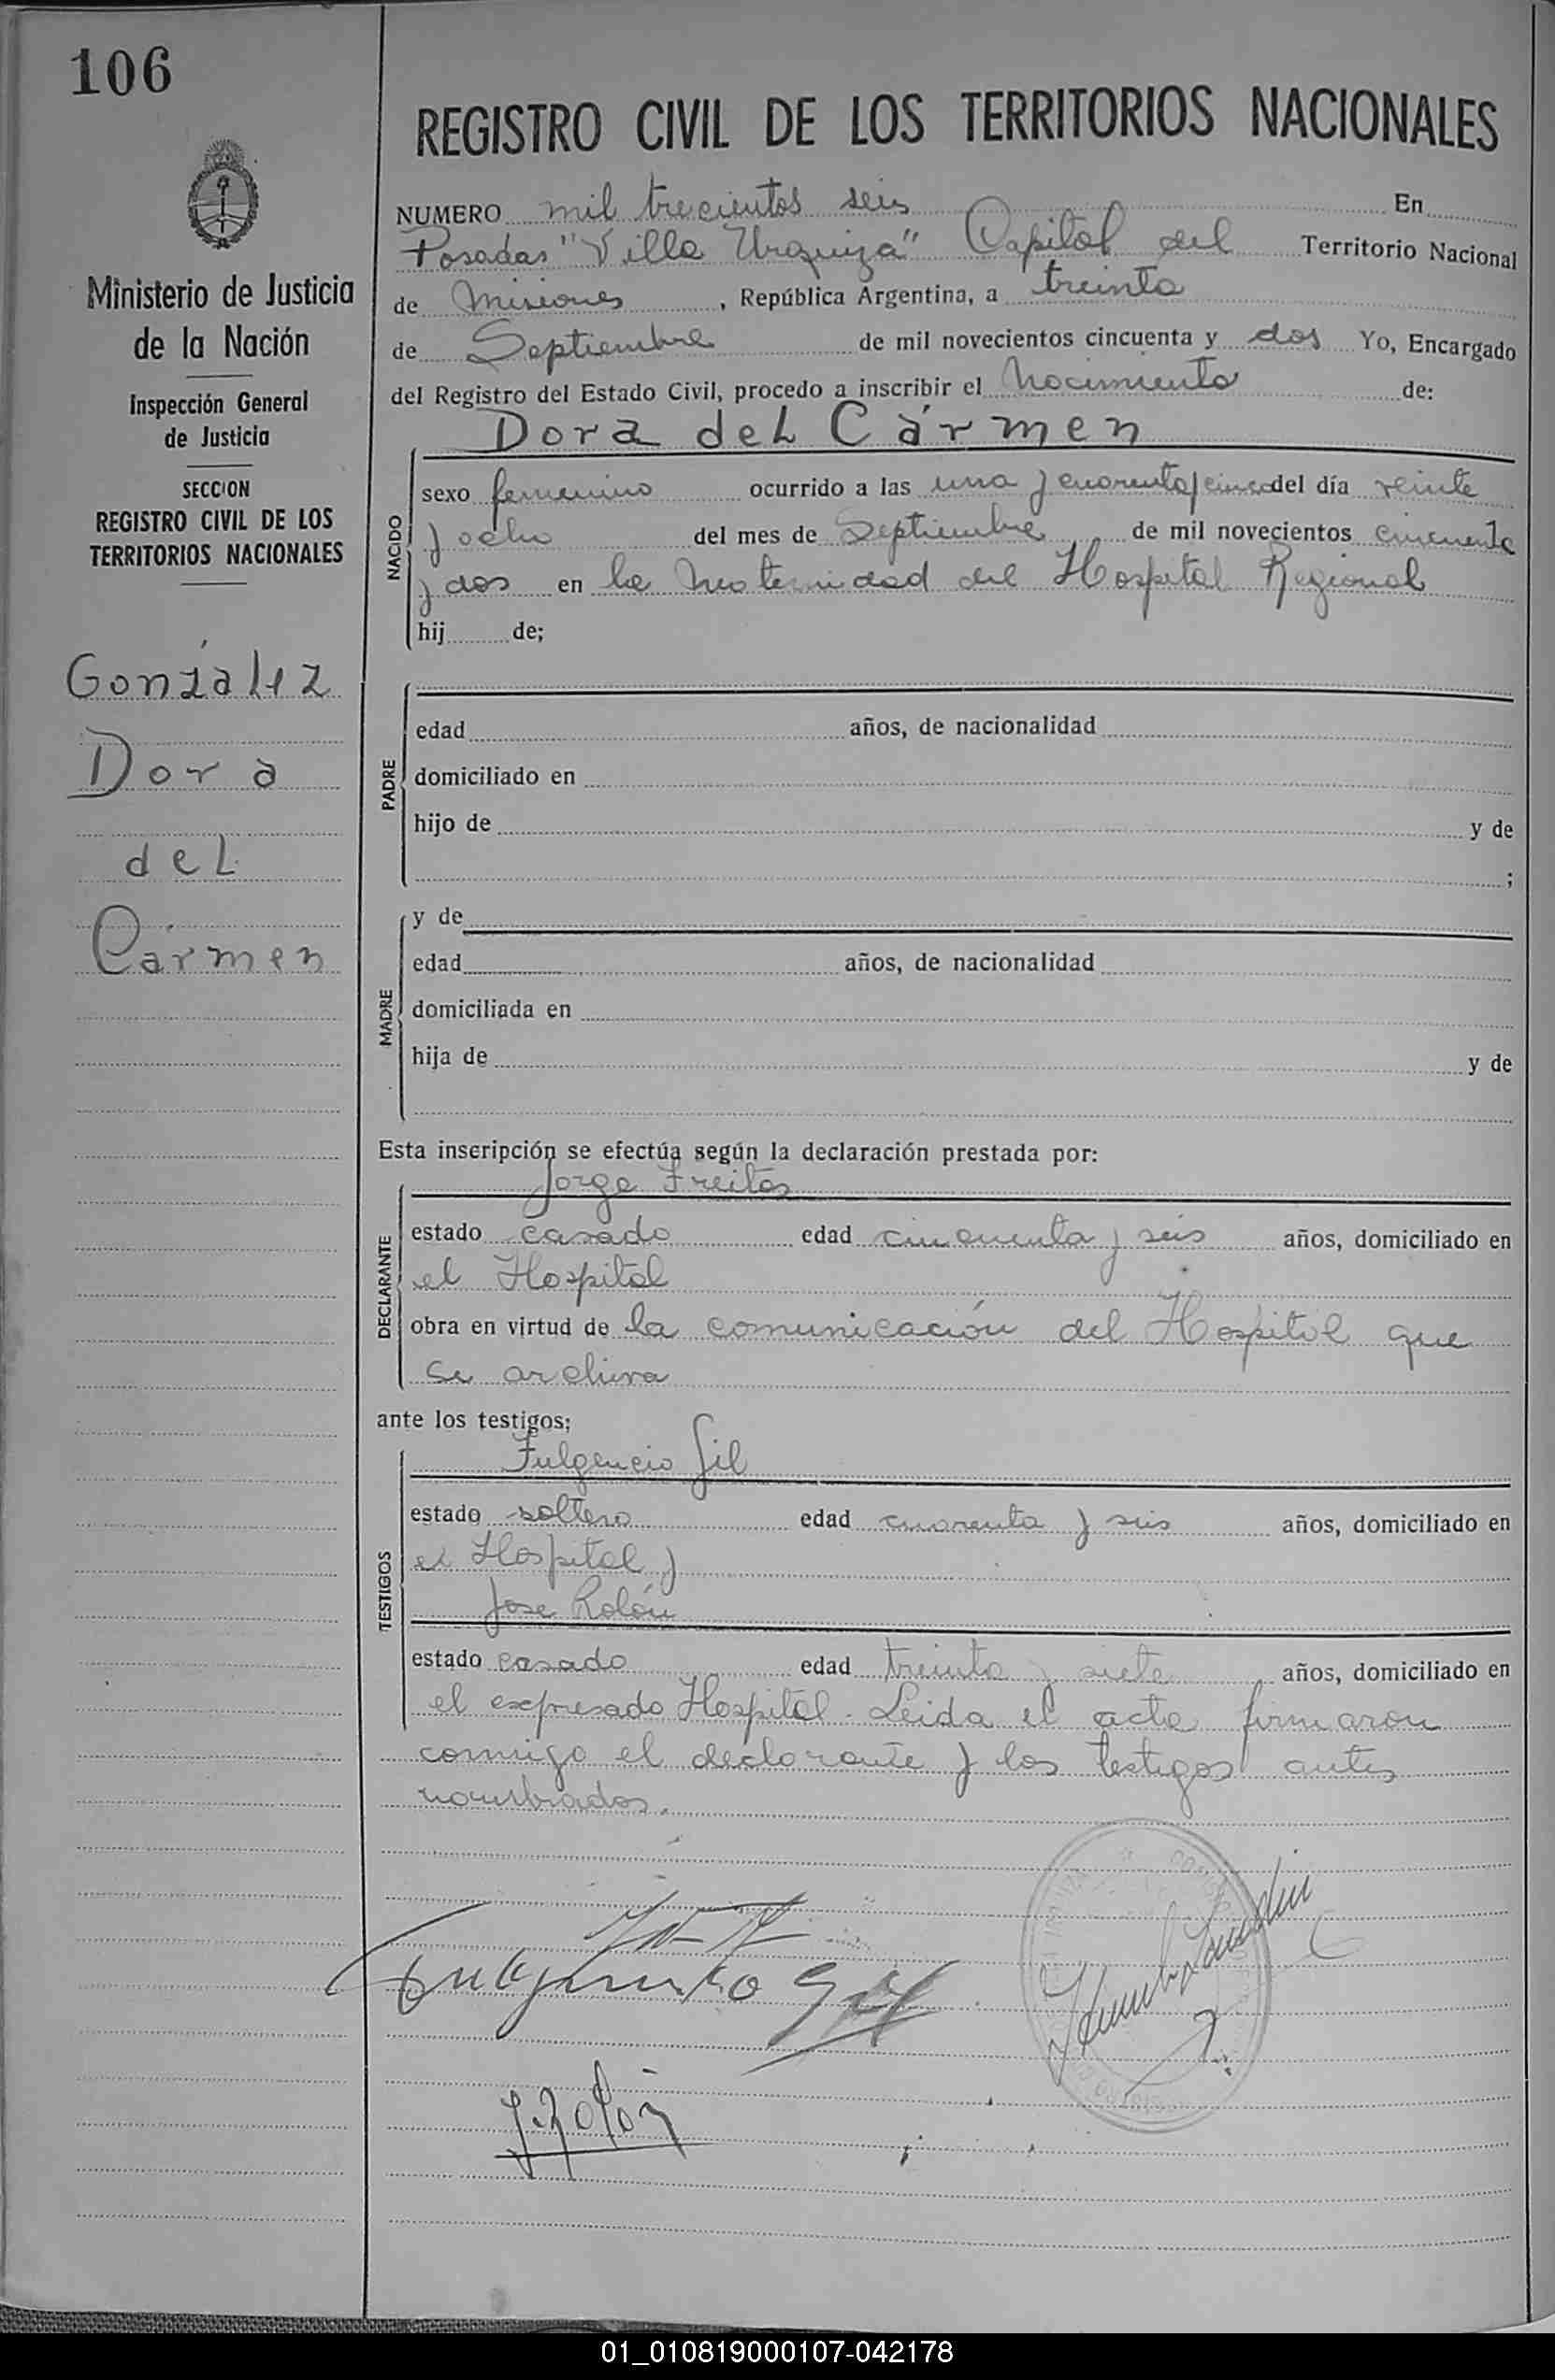 106
Ministerio de Justicia
de la Nación
Inspección General
de Justicia
SECCION
REGISTRO CIVIL DE LOS
TERRITORIOS NACIONALES
González
Dora
del
Cármen
REGISTRO CIVIL DE LOS TERRITORIOS NACIONALES
NUMERO mil trecientos seis En
Posadas "Villa Urquiza" Capital del Territorio Nacional
de Misiones, República Argentina, a treinta
de Septiembre de mil novecientos cincuenta y dos Yo, Encargado
del Registro del Estado Civil, procedo a inscribir el Nacimiento de:
Dora del Cármen
NACIDO
sexo femenino ocurrido a las una y cuarenta y cinco del día veinte
y ocho del mes de Septiembre de mil novecientos cincuenta
y dos en la Maternidad del Hospital Regional
hij de;
PADRE
edad años, de nacionalidad
domiciliado en
hijo de y de
;
MADRE
y de
edad años, de nacionalidad
domiciliada en
hija de y de
Esta inscripción se efectúa según la declaración prestada por:
DECLARANTE
Jorge Freitas
estado casado edad cincuenta y seis años, domiciliado en
el Hospital
obra en virtud de la comunicación del Hospital que
se archiva
ante los testigos;
TESTIGOS
Fulgencio Gil
estado soltero edad cuarenta y seis años, domiciliado en
el Hospital y
Jose Rolón
estado casado edad treinta y siete años, domiciliado en
el expresado Hospital. Leida el acta firmaron
conmigo el declarante y los testigos antes
nombrados.
Fulgencio Gil
J. Rolón
01_010819000107-042178